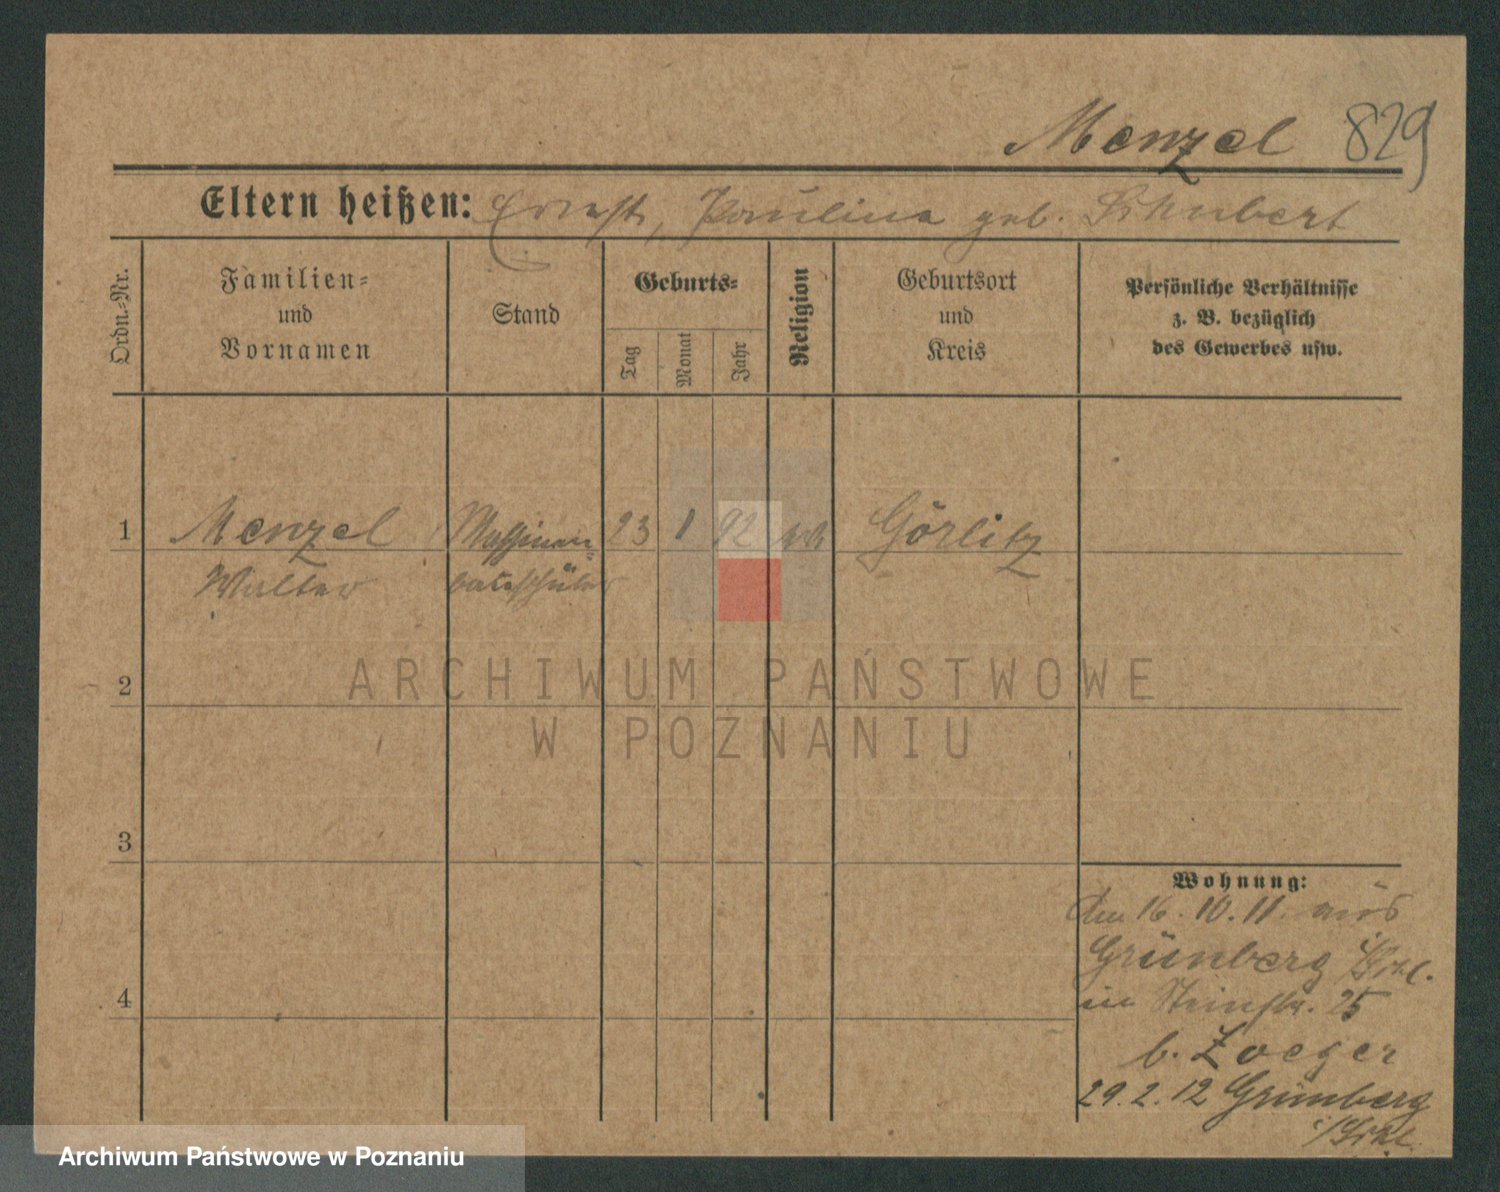 Menzel 829
Eltern heißen: Ernst, Paulina geb. Schubert
Ordn.-Nr.
Familien-
und
Vornamen
Stand
Geburts-
Tag
Monat
Jahr
Religion
Geburtsort
und
Kreis
Persönliche Verhältnisse
z. B. bezüglich
des Gewerbes usw.
1 Menzel Maschinen- 23 1 92 Görlitz
Walter bauschüler
2
ARCHIWUM PAŃSTWOWE
W POZNANIU
3
Wohnung:
16.10.11. aus
Grünberg i/Schl.
in Steinstr. 25
4
b. Zoeger
29.2.12 Grünberg
i/Schl.
Archiwum Państwowe w Poznaniu